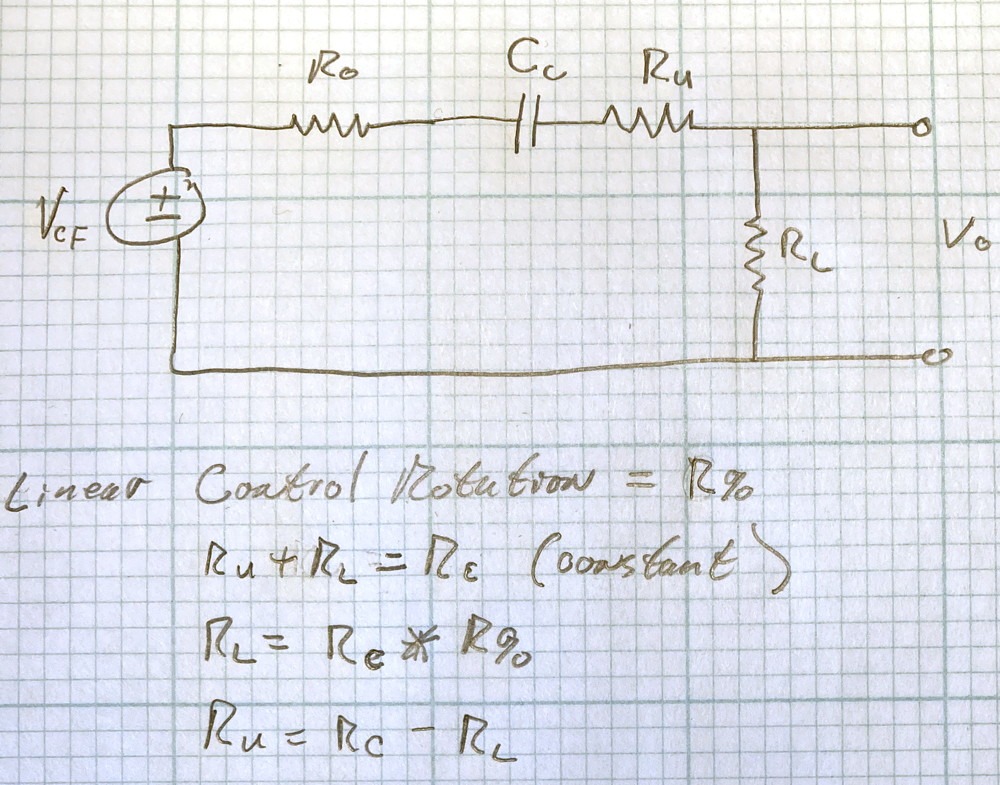 Ro Cc Ru
VCF + RL Vo
Linear Control Rotation = R%
Ru + RL = Rc (constant)
RL = Rc * R%
Ru = Rc - RL